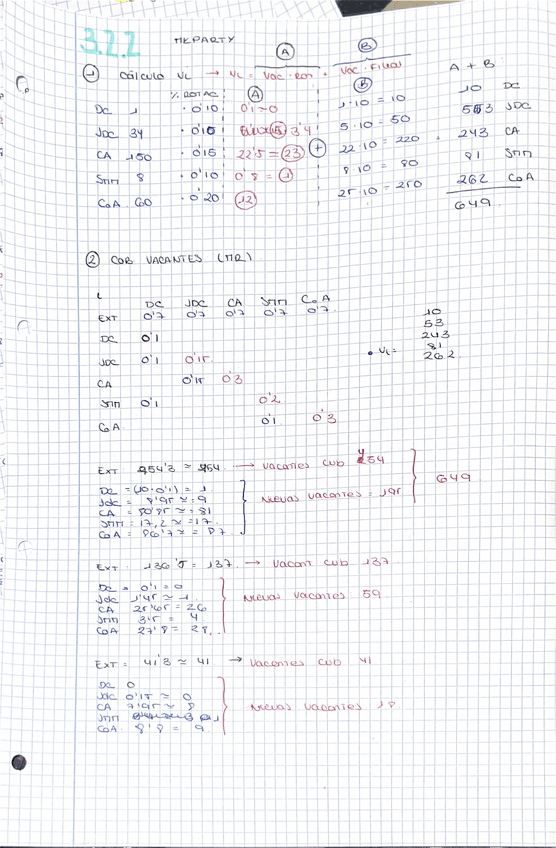 3.2.2 MKPARTY
① Cálculo VL → VL = Vac. Rot + Vac. Filial
Ⓐ Ⓑ A + B
% ROTAC Ⓐ Ⓑ
DC 1 · 0'10 0'1=0 1·10 = 10 10 DC
JDC 34 · 0'10 3'4 5·10 = 50 53 JDC
CA 150 · 0'15 22'5 = 23 + 22·10 = 220 243 CA
SMM 8 · 0'10 0'8 = 1 8·10 = 80 81 SMM
CoA 60 · 0'20 12 25·10 = 250 262 CoA
649
② COB VACANTES (MR)
L
DC JDC CA SMM CoA
EXT 0'7 0'7 0'7 0'7 0'7
DC 0'1
JDC 0'1 0'15
CA 0'15 0'3
SMM 0'1 0'2
CoA 0'1 0'3
• VL =
10
53
243
81
262
EXT 454'3 ≈ 454 → Vacantes cub 454
DC = (10·0'1) = 1
JDC = 8'95 ≈ 9
CA = 80'85 ≈ 81
SMM = 17,2 ≈ 17
CoA = 86'7 ≈ 87
Nuevas vacantes = 195
649
EXT = 136'5 = 137 → Vacant cub 137
DC = 0'1 = 0
JDC 1'45 ≈ 1
CA 25'65 = 26
SMM 3'5 = 4
CoA 27'8 = 28
Nuevas vacantes 59
EXT = 41'3 ≈ 41 → Vacantes cub 41
DC 0
JDC 0'15 ≈ 0
CA 7'95 ≈ 8
SMM
CoA 8'8 = 9
Nuevas vacantes 18